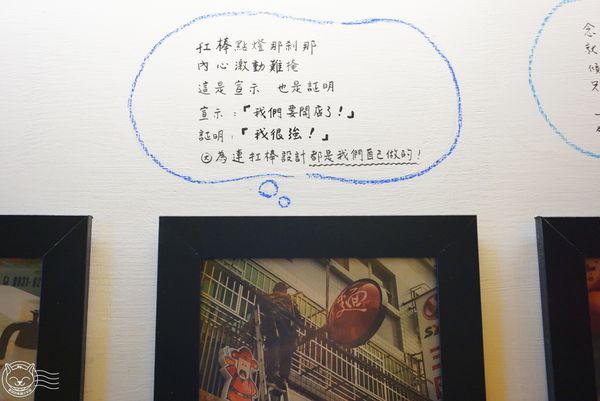 扛棒點燈那剎那
內心激動難掩
這是宣示 也是証明
宣示:『我們要開店了!』
証明:『我很強!』
因為連扛棒設計都是我們自己做的!
念
就